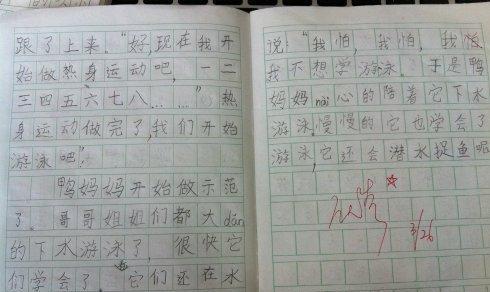 跟了上来。“好,现在我开
始做热身运动吧,一二
三四五六七八……”热
身运动做完了,我们开始
游泳吧”
鸭妈妈开始做示范
了。哥哥姐姐们都大dǎn
的下水游泳了,很快它
们学会了。它们还在水
说:“我怕,我怕,我怕
我不想学游泳。于是鸭
妈妈nài心的陪着它下水
游泳,慢慢的它也学会了
游泳,它还会潜水捉鱼呢
3/26